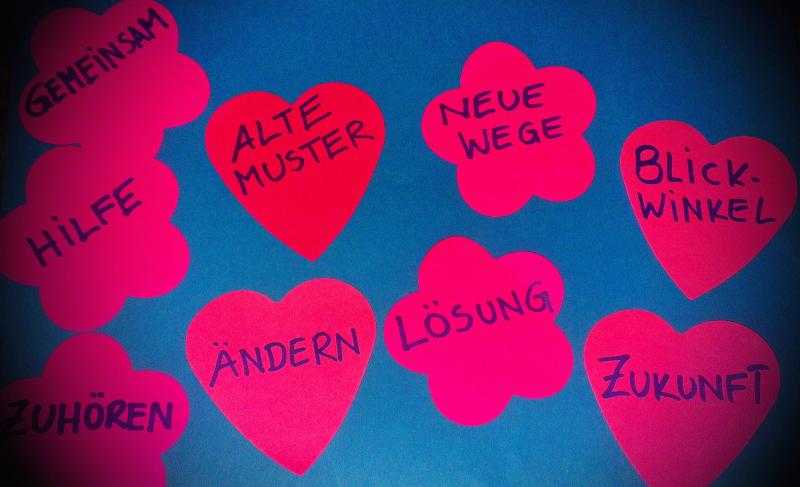 GEMEINSAM
ALTE
MUSTER
NEUE
WEGE
BLICK-
WINKEL
HILFE
ÄNDERN
LÖSUNG
ZUKUNFT
ZUHÖREN